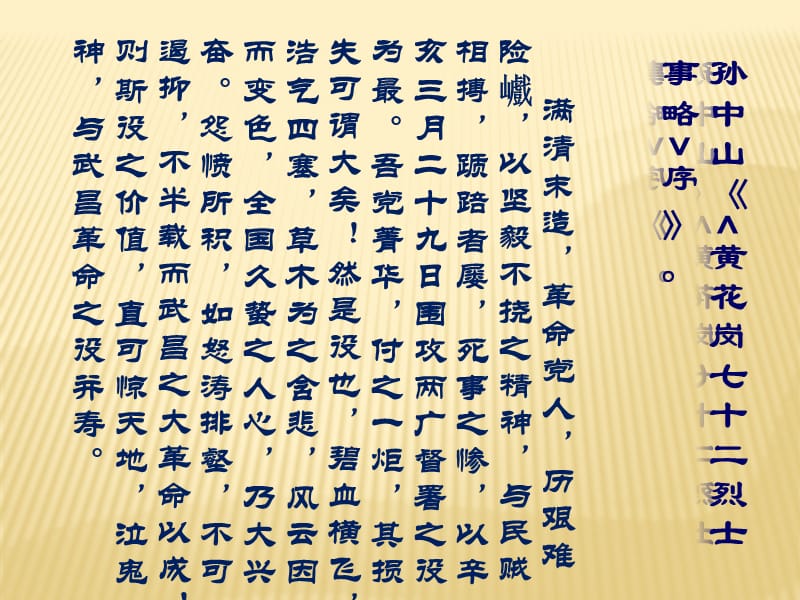 孙中山《<黄花岗七十二烈士
事略>序》。
满清末造，革命党人，历艰难
险巇，以坚毅不挠之精神，与民贼
相搏，踬踣者屡，死事之惨，以辛
亥三月二十九日围攻两广督署之役
为最。吾党菁华，付之一炬，其损
失可谓大矣！然是役也，碧血横飞，
浩气四塞，草木为之含悲，风云因
而变色，全国久蛰之人心，乃大兴
奋。怨愤所积，如怒涛排壑，不可
遏抑，不半载而武昌之大革命以成！
则斯役之价值，直可惊天地，泣鬼
神，与武昌革命之役并寿。